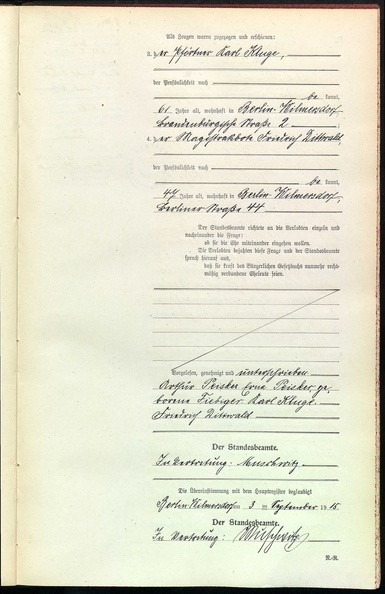 Als Zeugen waren zugezogen und erschienen:
3. der Pförtner Karl Kluge,
der Persönlichkeit nach
be kannt,
61 Jahre alt, wohnhaft in Berlin-Wilmersdorf,
Brandenburgische Straße 2
4. der Magistratsbote Friedrich Dittwald,
der Persönlichkeit nach
be kannt,
47 Jahre alt, wohnhaft in Berlin-Wilmersdorf,
Berliner Straße 44
Der Standesbeamte richtete an die Verlobten einzeln und
nacheinander die Frage:
ob sie die Ehe miteinander eingehen wollen.
Die Verlobten bejahten diese Frage und der Standesbeamte
sprach hierauf aus,
daß sie kraft des Bürgerlichen Gesetzbuchs nunmehr recht-
mäßig verbundene Eheleute seien.
Vorgelesen, genehmigt und unterschrieben
Arthur Peisker Erna Peisker, ge-
borene Fiebiger. Karl Kluge.
Friedrich Dittwald
Der Standesbeamte.
In Vertretung: Muschwitz
Die Übereinstimmung mit dem Hauptregister beglaubigt
Berlin-Wilmersdorf, am 3 ten September 1915.
Der Standesbeamte.
In Vertretung: Muschwitz